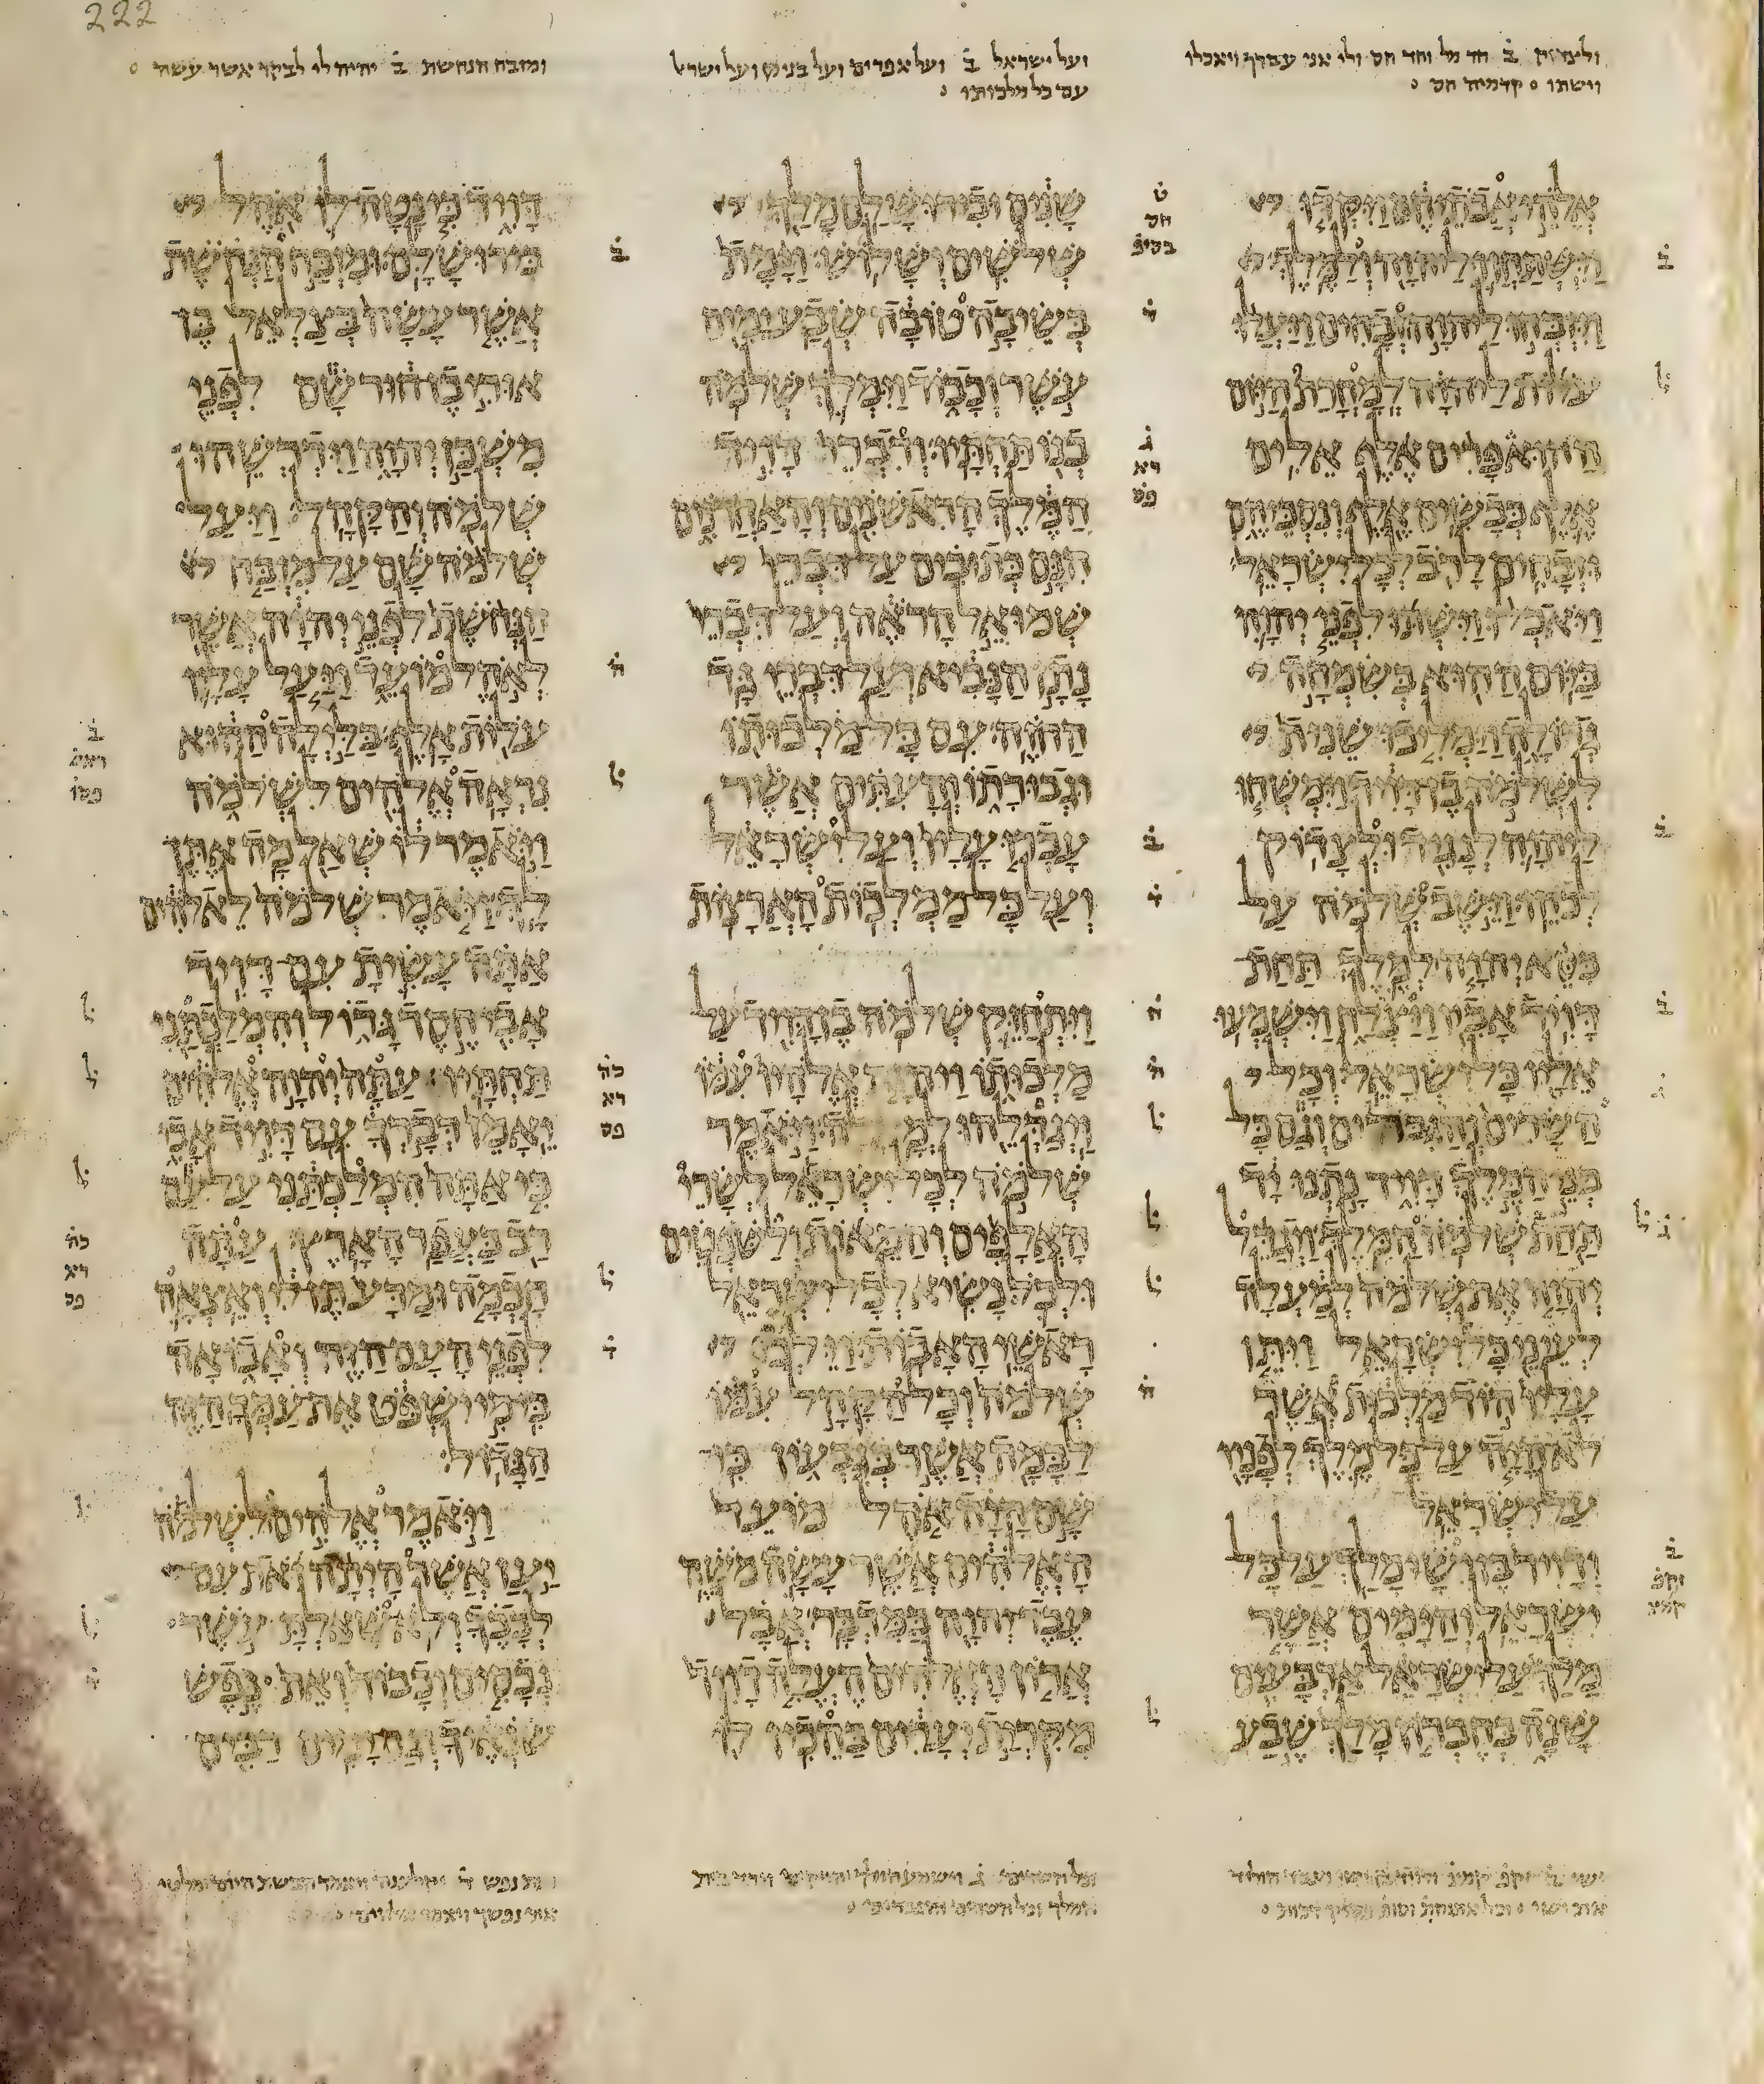 222
ולצדוק ב חד מל וחד חס ולו אני עבדך ויאכלו
וישתו ס קדמיה חס ס
ועל ישראל ב ועל אפרים ועל בנימן ועל ישרא
עם כל מלכותו ס
ומזבח הנחשת ב יהיה לי לבקר אשר עשה ס
אלהי אבתיהם ויקדו
וישתחוו ליהוה ולמלך
ויזבחו ליהוה זבחים ויעלו
עלות ליהוה למחרת היום
ההוא פרים אלף אילים
אלף כבשים אלף ונסכיהם
וזבחים לרב לכל ישראל
ויאכלו וישתו לפני יהוה
ביום ההוא בשמחה
גדולה וימליכו שנית
לשלמה בן דויד וימשחו
ליהוה לנגיד ולצדוק
לכהן וישב שלמה על
כסא יהוה למלך תחת
דויד אביו ויצלח וישמעו
אליו כל ישראל וכל
השרים והגברים וגם כל
בני המלך דויד נתנו יד
תחת שלמה המלך ויגדל
יהוה את שלמה למעלה
לעיני כל ישראל ויתן
עליו הוד מלכות אשר
לא היה על כל מלך לפניו
על ישראל
ודויד בן ישי מלך על כל
ישראל והימים אשר
מלך על ישראל ארבעים
שנה בחברון מלך שבע
שנים ובירושלם מלך
שלשים ושלוש וימת
בשיבה טובה שבע ימים
עשר וכבוד וימלך שלמה
בנו תחתיו ודברי דויד
המלך הראשנים והאחרנים
הנם כתובים על דברי
שמואל הראה ועל דברי
נתן הנביא ועל דברי גד
החזה עם כל מלכותו
וגבורתו והעתים אשר
עברו עליו ועל ישראל
ועל כל ממלכות הארצות
ויתחזק שלמה בן דויד על
מלכותו ויהוה אלהיו עמו
ויגדלהו למעלה ויאמר
שלמה לכל ישראל לשרי
האלפים והמאות ולשפטים
ולכל נשיא לכל ישראל
ראשי האבות וילכו
שלמה וכל הקהל עמו
לבמה אשר בגבעון כי
שם היה אהל מועד
האלהים אשר עשה משה
עבד יהוה במדבר אבל
ארון האלהים העלה דויד
מקרית יערים בהכין לו
דויד כי נטה לו אהל
בירושלם ומזבח הנחשת
אשר עשה בצלאל בן
אורי בן חור שם לפני
משכן יהוה וידרשהו
שלמה והקהל ויעל
שלמה שם על מזבח
הנחשת לפני יהוה אשר
לאהל מועד ויעל עליו
עלות אלף בלילה ההוא
נראה אלהים לשלמה
ויאמר לו שאל מה אתן
לך ויאמר שלמה לאלהים
אתה עשית עם דויד
אבי חסד גדול והמלכתני
תחתיו עתה יהוה אלהים
יאמן דברך עם דויד אבי
כי אתה המלכתני על עם
רב כעפר הארץ עתה
חכמה ומדע תן לי ואצאה
לפני העם הזה ואבואה
כי מי ישפט את עמך הזה
הגדול
ויאמר אלהים לשלמה
יען אשר היתה זאת עם
לבבך ולא שאלת עשר
נכסים וכבוד ואת נפש
שנאיך וגם ימים רבים